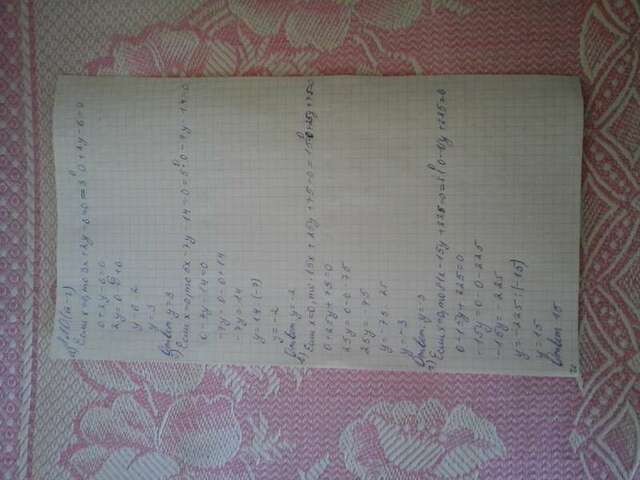 а) Если x=0, то 3x+2y-6=0 = 3·0+2y-6=0
0+2y-6=0
2y=0-0+6
y=6:2
y=3
Ответ: y=3
Если x=0, то 5x-7y-14=0=5·0-7y-14=0
0-7y-14=0
-7y=0-0+14
-7y=14
y=14:(-7)
y=-2
Ответ: y=-2
в) Если x=0, то -15x+25y+75=0=15·0+25y+75=0
0+25y+75=0
25y=0-0-75
25y=-75
y=-75:25
y=-3
Ответ: y=-3
г) Если x=0, то 81x-15y+225=0=81·0-15y+225=0
0-15y+225=0
-15y=0-0-225
-15y=-225
y=-225:(-15)
y=15
Ответ 15